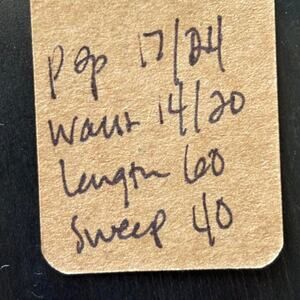 Pap 17/24
Waist 14/20
Length 60
Sweep 40